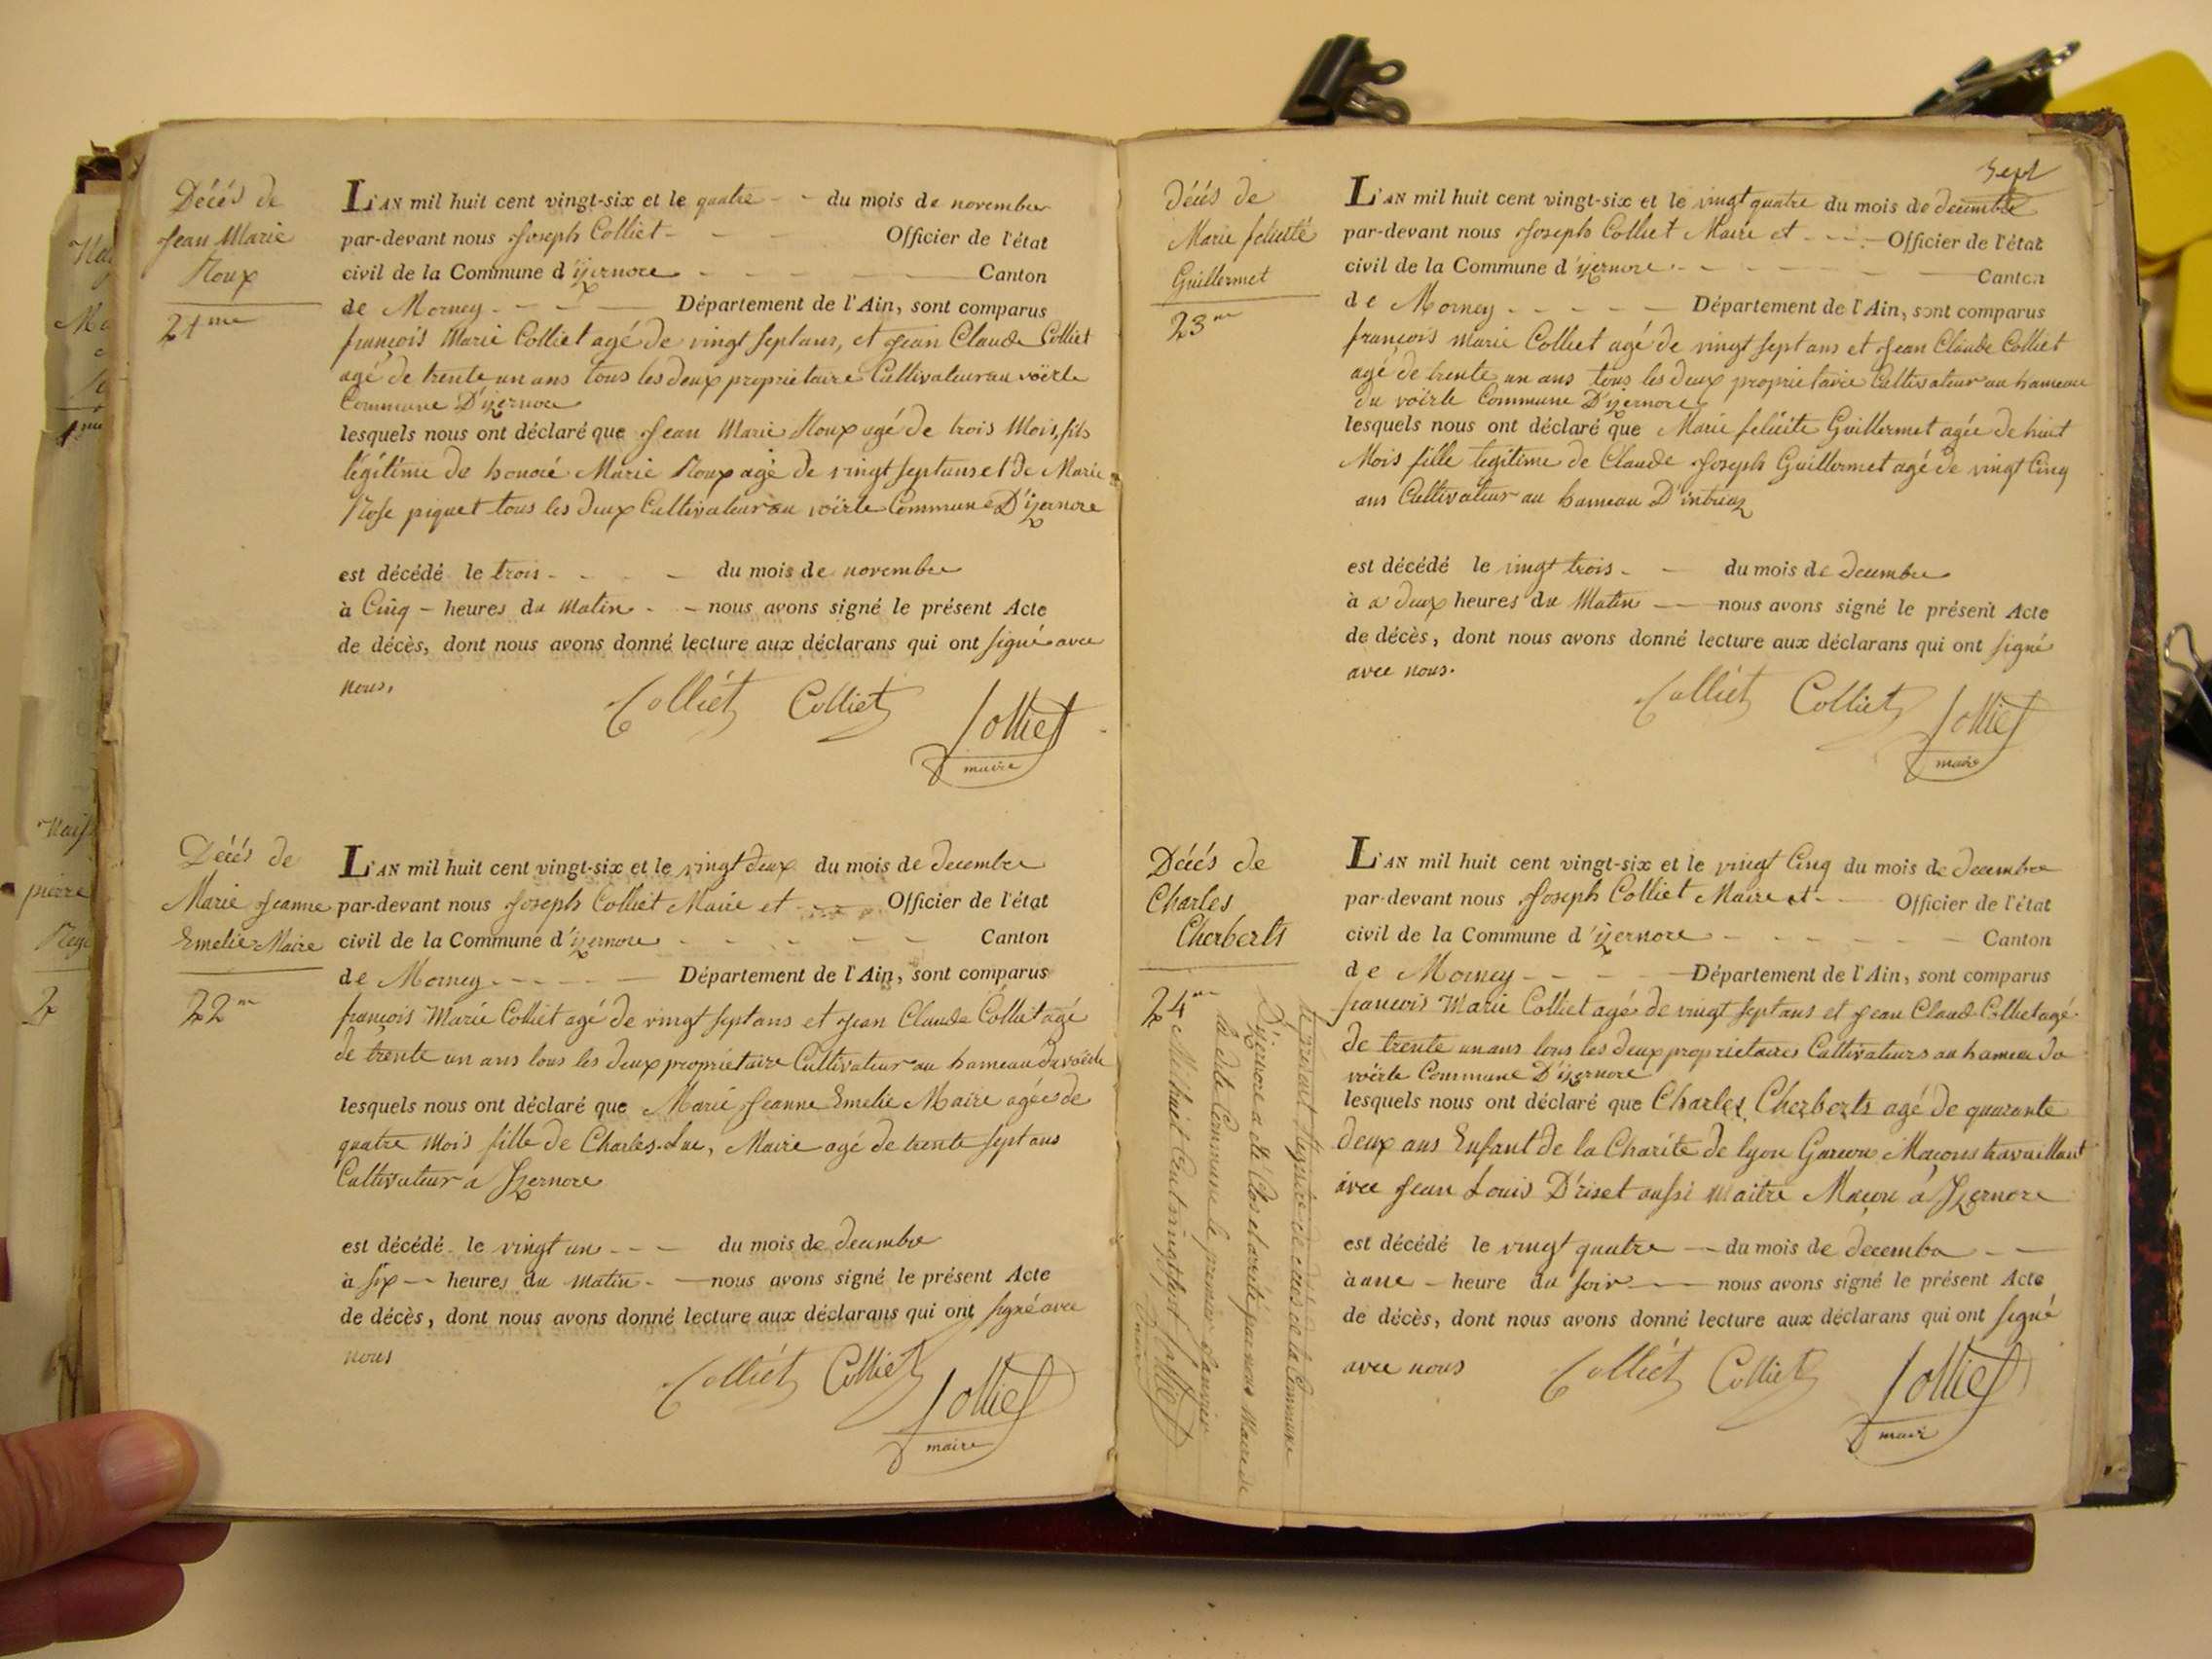 Décés de
Jean Marie
Roux
21me
L'AN mil huit cent vingt-six et le quatre - - du mois de novembre
par-devant nous Joseph Colliet - - - Officier de l'état
civil de la Commune d'izernore - - - - Canton
de Morney - - - Département de l'Ain, sont comparus
françois Marie Colliet agé de vingt sept ans, et Jean Claude Colliet
agé de trente un ans tous les deux proprietaire Cultivateur au voërle
Commune D'izernore
lesquels nous ont déclaré que Jean Marie Roux agé de trois Mois, fils
légitime de honoré Marie Roux agé de vingt sept ans et de Marie
Rose piquet tous les deux Cultivateur au voërle Commune D'izernore
est décédé le trois - - - - du mois de novembre
à Cinq - heures du Matin - - nous avons signé le présent Acte
de décès, dont nous avons donné lecture aux déclarans qui ont signé avec
nous,
Colliet Colliet Colliet
maire
Décés de
Marie Jeanne
Emelie Maire
22me
L'AN mil huit cent vingt-six et le vingt deux du mois de decembre
par-devant nous Joseph Colliet Maire et - - - Officier de l'état
civil de la Commune d'izernore - - - - - Canton
de Morney - - - - Département de l'Ain, sont comparus
françois Marie Colliet agé de vingt sept ans et Jean Claude Colliet agé
de trente un ans tous les deux proprietaire Cultivateur au hameau du voërle
lesquels nous ont déclaré que Marie Jeanne Emelie Maire agée de
quatre Mois fille de Charles Luc, Maire agé de trente sept ans
Cultivateur a Izernore
est décédé le vingt un - - - du mois de decembre
à six - - heures du Matin - - nous avons signé le présent Acte
de décès, dont nous avons donné lecture aux déclarans qui ont signé avec
nous
Colliet Colliet Colliet
maire
Sept
décés de
Marie felicité
Guillermet
23me
L'AN mil huit cent vingt-six et le vingt quatre du mois de decembre
par-devant nous Joseph Colliet Maire et - - - Officier de l'état
civil de la Commune d'izernore - - - - - Canton
de Morney - - - - - Département de l'Ain, sont comparus
françois marie Colliet agé de vingt sept ans et Jean Claude Colliet
agé de trente un ans tous les deux proprietaire Cultivateur au hameau
du voërle Commune D'izernore
lesquels nous ont déclaré que Marie felicite Guillermet agée de huit
Mois fille legitime de Claude Joseph Guillermet agé de vingt Cinq
ans Cultivateur au hameau D'intriaz
est décédé le vingt trois - - du mois de decembre
à a deux heures du Matin - - nous avons signé le présent Acte
de décès, dont nous avons donné lecture aux déclarans qui ont signé
avec nous.
Colliet Colliet Colliet
maire
Décés de
Charles
Cherberts
24me
L'AN mil huit cent vingt-six et le vingt Cinq du mois de decembre
par-devant nous Joseph Colliet Maire et - - Officier de l'état
civil de la Commune d'izernore - - - - - Canton
de Morney - - - - Département de l'Ain, sont comparus
francois Marie Colliet agé de vingt sept ans et Jean Claud Colliet agé
de trente un ans tous les deux proprietaires Cultivateurs au hameau du
voërle Commune D'izernore
lesquels nous ont déclaré que Charles Cherberts agé de quarante
deux ans Enfant de la Charité de lyon Garçon Maçons travaillant
avec Jean Louis D'riset aussi Maitre Maçon á Izernore
est décédé le vingt quatre - - du mois de decembre - -
à une - heure du soir - - nous avons signé le présent Acte
de décès, dont nous avons donné lecture aux déclarans qui ont signé
avec nous
Colliet Colliet Colliet
maire
le présent Registre de décés de la Commune
D'izernore a été Clos et arrêté par nous Maire de
la dite Commune le premier Janvier
Mil huit Cent vingt sept Colliet
maire